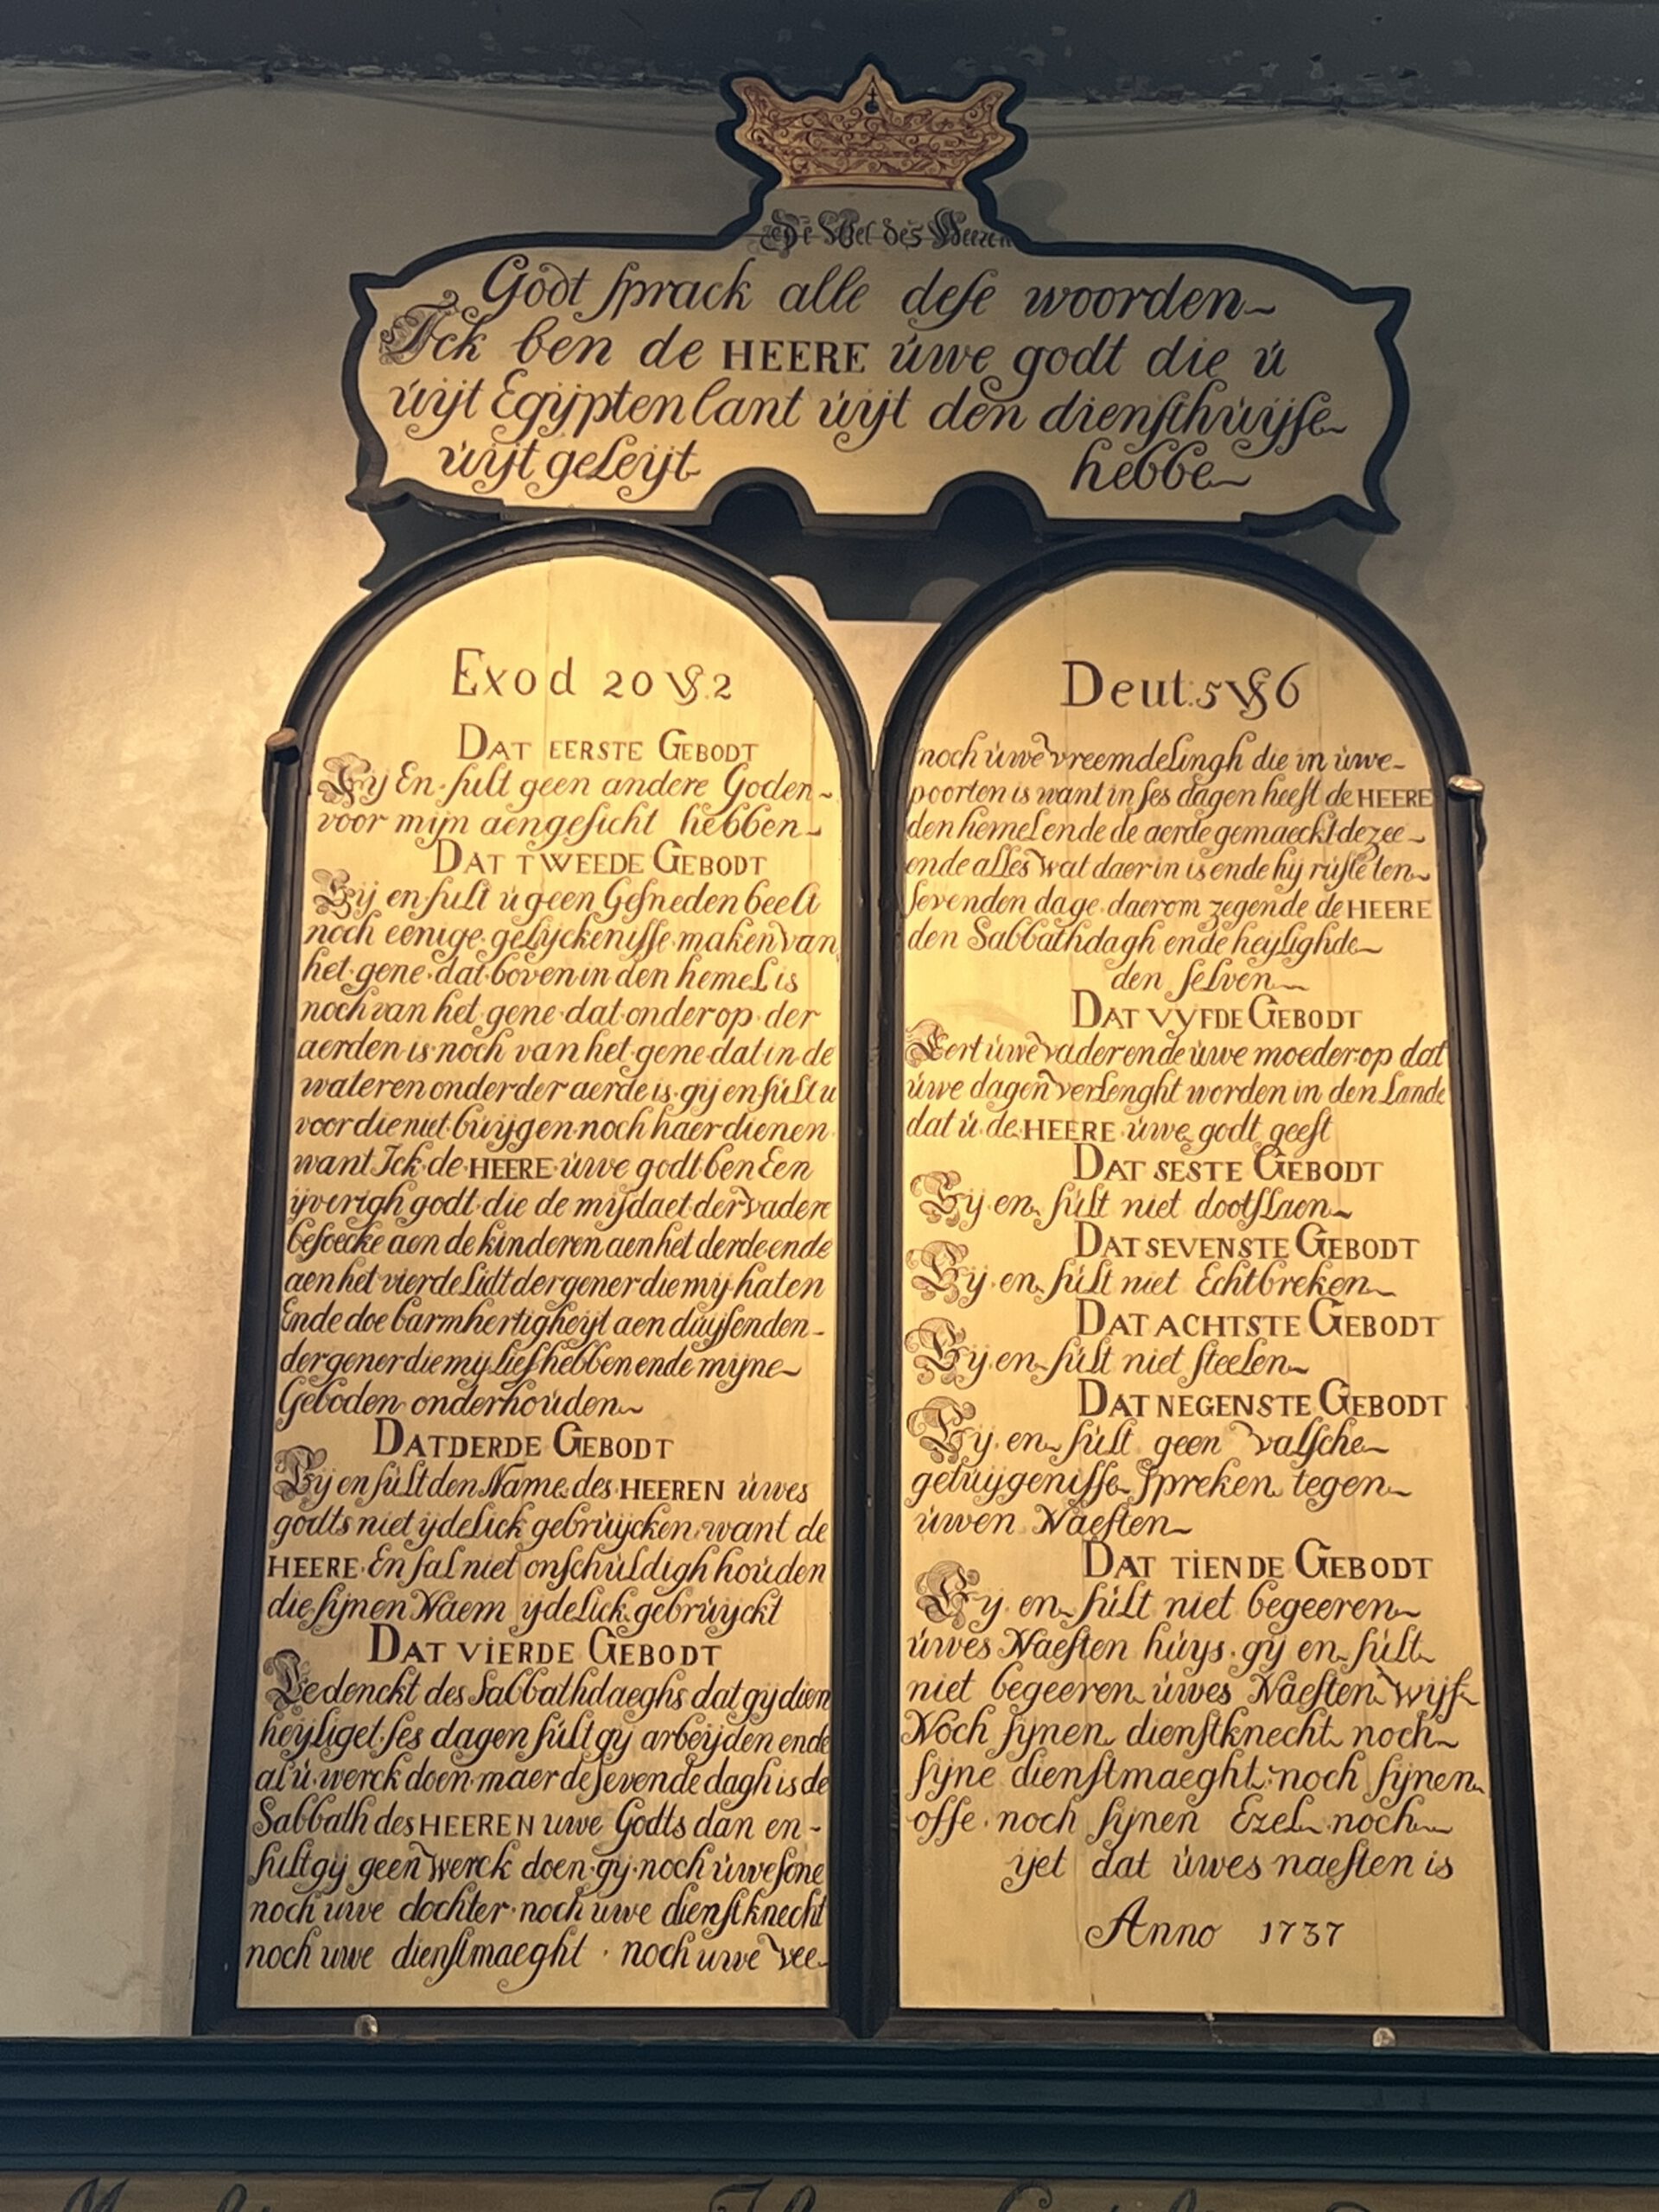 De Wet des Heeren
Godt sprack alle dese woorden~
Ick ben de HEERE úwe godt die ú
úijt Egijpten lant úijt den diensthúijse~
úijt geleijt hebbe~
Exod 20 vs. 2
DAT EERSTE GEBODT
Gij En sult geen andere Goden~
voor mijn aengesicht hebben~
DAT TWEEDE GEBODT
Gij en sult ú geen Gesneden beelt
noch eenige gelijckenisse maken van
het gene dat boven in den hemel is
noch van het gene dat onder op der
aerden is noch van het gene dat in de
wateren onder der aerde is gij en súlt u
voor die niet búijgen noch haer dienen
want Ick de HEERE úwe godt ben Een
ijverigh godt die de misdaet der vadere
besoecke aen de kinderen aen het derde ende
aen het vierde lidt dergener die mij haten
Ende doe barmhertigheijt aen dúijsenden-
dergener die mij lief hebben ende mijne~
Geboden onderhoúden~
DAT DERDE GEBODT
Gij en súlt den Name des HEEREN úwes
godts niet ijdelick gebrúijcken want de
HEERE En sal niet onschúldigh hoúden
die sijnen Naem ijdelick gebrúijckt
DAT VIERDE GEBODT
Gedenckt des Sabbathdaeghs dat gij dien
heijliget ses dagen súlt gij arbeijden ende
al ú werck doen maer de sevende dagh is de
Sabbath des HEEREN uwe Godts dan en-
sult gij geen werck doen gij noch úwe sone
noch uwe dochter noch uwe dienstknecht
noch uwe dienstmaeght · noch uwe vee-
Deut. 5 vs 6
noch úwe vreemdelingh die in úwe-
poorten is want in ses dagen heeft de HEERE
den hemel ende de aerde gemaeckt de zee-
ende alles wat daer in is ende hij rúste ten~
sevenden dage daerom zegende de HEERE
den Sabbathdagh ende heijlighde~
den selven~
DAT VYFDE GEBODT
Eert úwe vader ende úwe moeder op dat
úwe dagen verlenght worden in den lande
dat ú de HEERE úwe godt geeft
DAT SESTE GEBODT
Gij en súlt niet dootslaen~
DAT SEVENSTE GEBODT
Gij en súlt niet Echtbreken~
DAT ACHTSTE GEBODT
Gij en súlt niet steelen~
DAT NEGENSTE GEBODT
Gij en súlt geen valsche~
getúijgenisse spreken tegen~
úwen Naesten~
DAT TIENDE GEBODT
Gij en súlt niet begeeren~
úwes Naesten húys gij en súlt
niet begeeren úwes Naesten wijf~
Noch sijnen dienstknecht noch~
sijne dienstmaeght noch sijnen
osse noch sijnen Ezel noch~
ijet dat úwes naesten is
Anno 1737